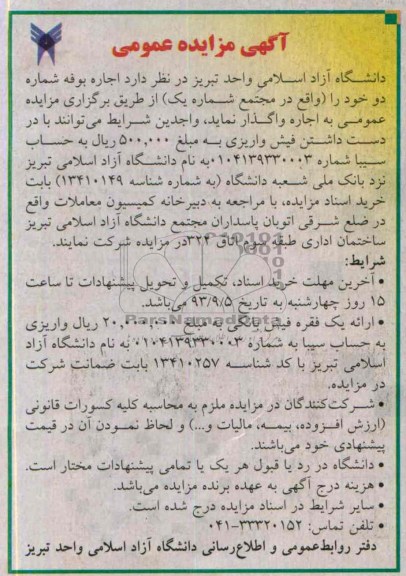 آگهی مزایده عمومی
دانشگاه آزاد اسلامی واحد تبریز در نظر دارد اجاره بوفه شماره
دو خود را (واقع در مجتمع شماره یک) از طریق برگزاری مزایده
عمومی به اجاره واگذار نماید، واجدین شرایط می‌توانند با در
دست داشتن فیش واریزی به مبلغ ۵۰۰,۰۰۰ ریال به حساب
سیبا شماره ۰۱۰۴۱۳۹۳۳۰۰۰۳ به نام دانشگاه آزاد اسلامی تبریز
نزد بانک ملی شعبه دانشگاه (به شماره شناسه ۱۳۴۱۰۱۴۹) بابت
خرید اسناد مزایده، با مراجعه به دبیرخانه کمیسیون معاملات واقع
در ضلع شرقی اتوبان پاسداران مجتمع دانشگاه آزاد اسلامی تبریز
ساختمان اداری طبقه سوم اتاق ۳۲۴ در مزایده شرکت نمایند.
شرایط:
• آخرین مهلت خرید اسناد، تکمیل و تحویل پیشنهادات تا ساعت
۱۵ روز چهارشنبه به تاریخ ۹۳/۹/۵ می‌باشد.
• ارائه یک فقره فیش بانکی به مبلغ ۲۰,۰۰۰,۰۰۰ ریال واریزی
به حساب سیبا به شماره ۰۱۰۴۱۳۹۳۳۰۰۰۳ به نام دانشگاه آزاد
اسلامی تبریز با کد شناسه ۱۳۴۱۰۲۵۷ بابت ضمانت شرکت
در مزایده.
• شرکت‌کنندگان در مزایده ملزم به محاسبه کلیه کسورات قانونی
(ارزش افزوده، بیمه، مالیات و...) و لحاظ نمودن آن در قیمت
پیشنهادی خود می‌باشند.
• دانشگاه در رد یا قبول هر یک یا تمامی پیشنهادات مختار است.
• هزینه درج آگهی به عهده برنده مزایده می‌باشد.
• سایر شرایط در اسناد مزایده درج شده است.
• تلفن تماس: ۳۳۳۲۰۱۵۲-۰۴۱
دفتر روابط‌عمومی و اطلاع‌رسانی دانشگاه آزاد اسلامی واحد تبریز
ParsNamadData